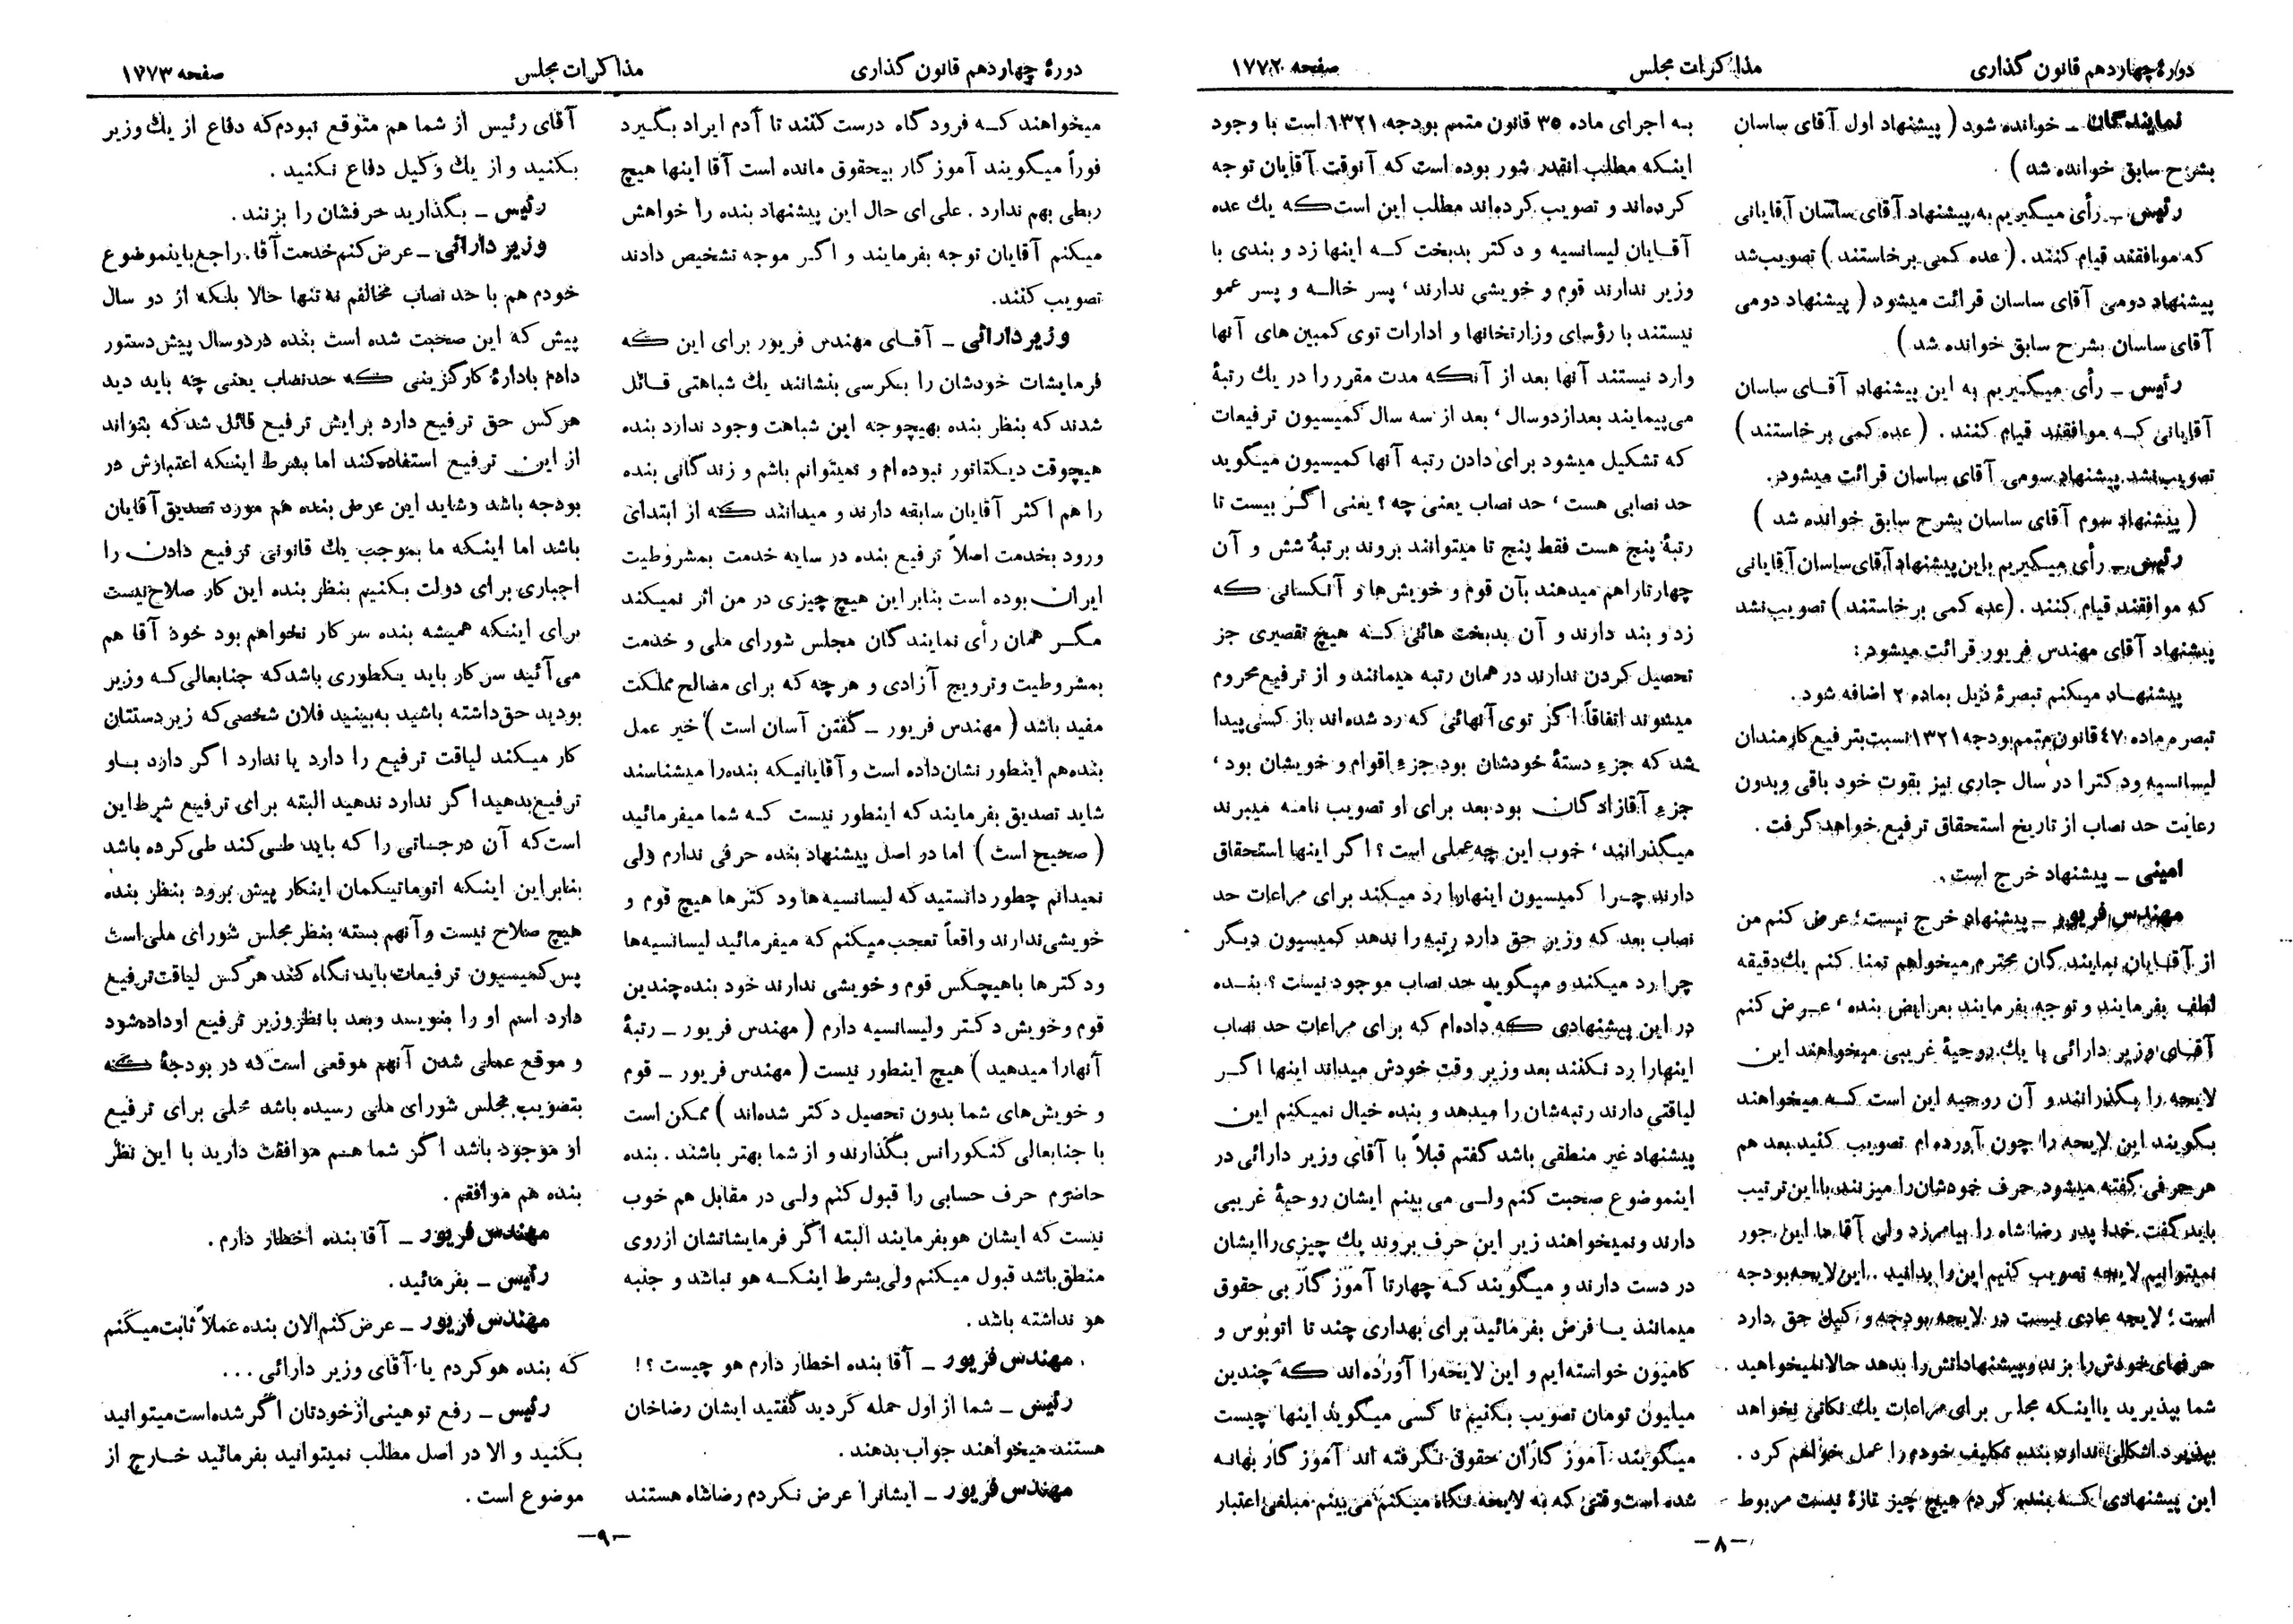 دورهٔ چهاردهم قانون گذاری مذاکرات مجلس صفحه ۱۷۷۲
نمایندگان ـ خوانده شود ( پیشنهاد اول آقای ساسان
بشرح سابق خوانده شد )
رئیس ـ رأی میگیریم به پیشنهاد آقای ساسان آقایانی
که موافقند قیام کنند . ( عده کمی برخاستند ) تصویب نشد
پیشنهاد دومی آقای ساسان قرائت میشود ( پیشنهاد دومی
آقای ساسان بشرح سابق خوانده شد )
رئیس ـ رأی میگیریم به این پیشنهاد آقای ساسان
آقایانی که موافقند قیام کنند . ( عده کمی برخاستند )
تصویب نشد پیشنهاد سومی آقای ساسان قرائت میشود.
( پیشنهاد سوم آقای ساسان بشرح سابق خوانده شد )
رئیس ـ رأی میگیریم باین پیشنهاد آقای ساسان آقایانی
که موافقند قیام کنند . (عده کمی برخاستند ) تصویب نشد
پیشنهاد آقای مهندس فریور قرائت میشود :
پیشنهاد میکنم تبصرهٔ ذیل بماده ۲ اضافه شود .
تبصره ماده ٤٧ قانون متمم بودجه ۱۳۲۱ نسبت بترفیع کارمندان
لیسانسیه ودکترا در سال جاری نیز بقوت خود باقی وبدون
رعایت حد نصاب از تاریخ استحقاق ترفیع خواهد گرفت .
امینی ـ پیشنهاد خرج است .
مهندس فریور ـ پیشنهاد خرج نیست ؛ عرض کنم من
از آقایان نمایندگان محترم میخواهم تمنا کنم یك دقیقه
لطف بفرمایند و توجه بفرمایند بعرایض بنده ، عرض کنم
آقای وزیر دارائی با یك روحیهٔ غریبی میخواهند این
لایحه را بگذرانند و آن روحیه این است که میخواهند
بگویند این لایحه را چون آورده ام تصویب کنید بعد هم
هر حرفی گفته میشود حرف خودشان را میزنند با این ترتیب
باید گفت خدا پدر رضا شاه را بیامرزد ولی آقا ما این جور
نمیتوانیم لایحه تصویب کنیم این را بدانید . این لایحه بودجه
است ؛ لایحه عادی نیست در لایحه بودجه وکیل حق دارد
حرفهای خودش را بزند و پیشنهاداتش را بدهد حالا نمیخواهید
شما بپذیرید یا اینکه مجلس برای مراعات یك نکاتی نخواهد
بپذیرد اشکالی ندارد بنده تکلیف خودم را عمل خواهم کرد .
این پیشنهادی که بنده کردم هیچ چیز تازهٔ نیست مربوط
به اجرای ماده ۳۵ قانون متمم بودجه ۱۳۲۱ است با وجود
اینکه مطلب انقدر شور بوده است که آنوقت آقایان توجه
کرده‌اند و تصویب کرده‌اند مطلب این است که یك عده
آقایان لیسانسیه و دکتر بدبخت که اینها زد و بندی با
وزیر ندارند قوم و خویشی ندارند ، پسر خاله و پسر عمو
نیستند با رؤسای وزارتخانها و ادارات توی کمبین های آنها
وارد نیستند آنها بعد از آنکه مدت مقرر را در یك رتبهٔ
می‌پیمایند بعد از دو سال ، بعد از سه سال کمیسیون ترفیعات
که تشکیل میشود برای دادن رتبه آنها کمیسیون میگوید
حد نصابی هست ، حد نصاب یعنی چه ؟ یعنی اگر بیست تا
رتبهٔ پنج هست فقط پنج تا میتوانند بروند برتبهٔ شش و آن
چهارتا را هم میدهند بآن قوم و خویش‌ها و آنکسانی که
زد و بند دارند و آن بدبخت هائی که هیچ تقصیری جز
تحصیل کردن ندارند در همان رتبه میمانند و از ترفیع محروم
میشوند اتفاقاً اگر توی آنهائی که رد شده‌اند باز کسی پیدا
شد که جزء دستهٔ خودشان بود جزء اقوام و خویشان بود ،
جزء آقازادگان بود بعد برای او تصویب نامه میبرند
میگذرانند ، خوب این چه عملی است ؟ اگر اینها استحقاق
دارند چرا کمیسیون اینهارا رد میکند برای مراعات حد
نصاب بعد که وزیر حق دارد رتبه را ندهد کمیسیون دیگر
چرا رد میکند و میگوید حد نصاب موجود نیست ؟ بنده
در این پیشنهادی که داده‌ام که برای مراعات حد نصاب
اینهارا رد نکنند بعد وزیر وقت خودش میداند اینها اگر
لیاقتی دارند رتبه‌شان را میدهد و بنده خیال نمیکنم این
پیشنهاد غیر منطقی باشد گفتم قبلاً با آقای وزیر دارائی در
اینموضوع صحبت کنم ولی می بینم ایشان روحیهٔ غریبی
دارند و نمیخواهند زیر این حرف بروند یك چیزی را ایشان
در دست دارند و میگویند که چهارتا آموزگار بی حقوق
میمانند یا فرض بفرمائید برای بهداری چند تا اتوبوس و
کامیون خواسته‌ایم و این لایحه را آورده‌اند که چندین
میلیون تومان تصویب بکنیم تا کسی میگوید اینها چیست
میگویند آموزگاران حقوق نگرفته اند آموزگار بهانه
شده است وقتی که به لایحه نگاه میکنم می بینم مبلغی اعتبار
ـ ۸ ـ
دورهٔ چهاردهم قانون گذاری مذاکرات مجلس صفحه ۱۷۷۳
میخواهند که فرودگاه درست کنند تا آدم ایراد بگیرد
فوراً میگویند آموزگار بیحقوق مانده است آقا اینها هیچ
ربطی بهم ندارد . علی ای حال این پیشنهاد بنده را خواهش
میکنم آقایان توجه بفرمایند و اگر موجه تشخیص دادند
تصویب کنند.
وزیر دارائی ـ آقای مهندس فریور برای این که
فرمایشات خودشان را بکرسی بنشانند یك شباهتی قائل
شدند که بنظر بنده بهیچوجه این شباهت وجود ندارد بنده
هیچوقت دیکتاتور نبوده‌ام و نمیتوانم باشم و زندگانی بنده
را هم اکثر آقایان سابقه دارند و میدانند که از ابتدای
ورود بخدمت اصلاً ترفیع بنده در سایه خدمت بمشروطیت
ایران بوده است بنابراین هیچ چیزی در من اثر نمیکند
مگر همان رأی نمایندگان مجلس شورای ملی و خدمت
بمشروطیت وترویج آزادی و هرچه که برای مصالح مملکت
مفید باشد ( مهندس فریور ـ گفتن آسان است ) خیر عمل
بنده‌هم اینطور نشان‌داده است و آقایانیکه بنده‌را میشناسند
شاید تصدیق بفرمایند که اینطور نیست که شما میفرمائید
( صحیح است ) اما در اصل پیشنهاد بنده حرفی ندارم ولی
نمیدانم چطور دانستید که لیسانسیه‌ها ودکترها هیچ قوم و
خویشی ندارند واقعاً تعجب میکنم که میفرمائید لیسانسیه‌ها
ودکترها باهیچکس قوم و خویشی ندارند خود بنده چندین
قوم وخویش دکتر ولیسانسیه دارم ( مهندس فریور ـ رتبهٔ
آنهارا میدهید ) هیچ اینطور نیست ( مهندس فریور ـ قوم
و خویش‌های شما بدون تحصیل دکتر شده‌اند ) ممکن است
با جنابعالی کنکورانس بگذارند و از شما بهتر باشند . بنده
حاضرم حرف حسابی را قبول کنم ولی در مقابل هم خوب
نیست که ایشان هوبفرمایند البته اگر فرمایشاتشان از روی
منطق باشد قبول میکنم ولی بشرط اینکه هو نباشد و جنبه
هو نداشته باشد .
مهندس فریور ـ آقا بنده اخطار دارم هو چیست ؟ !
رئیس ـ شما از اول حمله کردید گفتید ایشان رضاخان
هستند میخواهند جواب بدهند .
مهندس فریور ـ ایشانرا عرض نکردم رضاشاه هستند
آقای رئیس از شما هم متوقع نبودم که دفاع از یك وزیر
بکنید و از یك وکیل دفاع نکنید .
رئیس ـ بگذارید حرفشان را بزنند .
وزیر دارائی ـ عرض کنم خدمت آقا . راجع باینموضوع
خودم هم با حد نصاب مخالفم نه تنها حالا بلکه از دو سال
پیش که این صحبت شده است بنده در دو سال پیش دستور
دادم بادارهٔ کارگزینی که حدنصاب یعنی چه باید دید
هرکس حق ترفیع دارد برایش ترفیع قائل شد که بتواند
از این ترفیع استفاده کند اما بشرط اینکه اعتبارش در
بودجه باشد و شاید این عرض بنده هم مورد تصدیق آقایان
باشد اما اینکه ما بموجب یك قانونی ترفیع دادن را
اجباری برای دولت بکنیم بنظر بنده این کار صلاح نیست
برای اینکه همیشه بنده سر کار نخواهم بود خود آقا هم
می‌آئید سر کار باید یکطوری باشد که جنابعالی که وزیر
بودید حق‌داشته باشید به‌بینید فلان شخصی که زیر دستتان
کار میکند لیاقت ترفیع را دارد یا ندارد اگر دارد باو
ترفیع بدهید اگر ندارد ندهید البته برای ترفیع شرط این
است که آن درجاتی را که باید طی کند طی کرده باشد
بنابراین اینکه اتوماتیکمان اینکار پیش برود بنظر بنده
هیچ صلاح نیست و آنهم بسته بنظر مجلس شورای ملی است
پس کمیسیون ترفیعات باید نگاه کند هرکس لیاقت ترفیع
دارد اسم او را بنویسد وبعد با نظر وزیر ترفیع او داده شود
و موقع عملی شدن آنهم موقعی است که در بودجهٔ که
بتصویب مجلس شورای ملی رسیده باشد محلی برای ترفیع
او موجود باشد اگر شما هم موافقت دارید با این نظر
بنده هم موافقم .
مهندس فریور ـ آقا بنده اخطار دارم .
رئیس ـ بفرمائید .
مهندس فریور ـ عرض کنم الان بنده عملاً ثابت میکنم
که بنده هو کردم یا آقای وزیر دارائی . . .
رئیس ـ رفع توهینی از خودتان اگر شده است میتوانید
بکنید و الا در اصل مطلب نمیتوانید بفرمائید خارج از
موضوع است .
ـ ۹ ـ